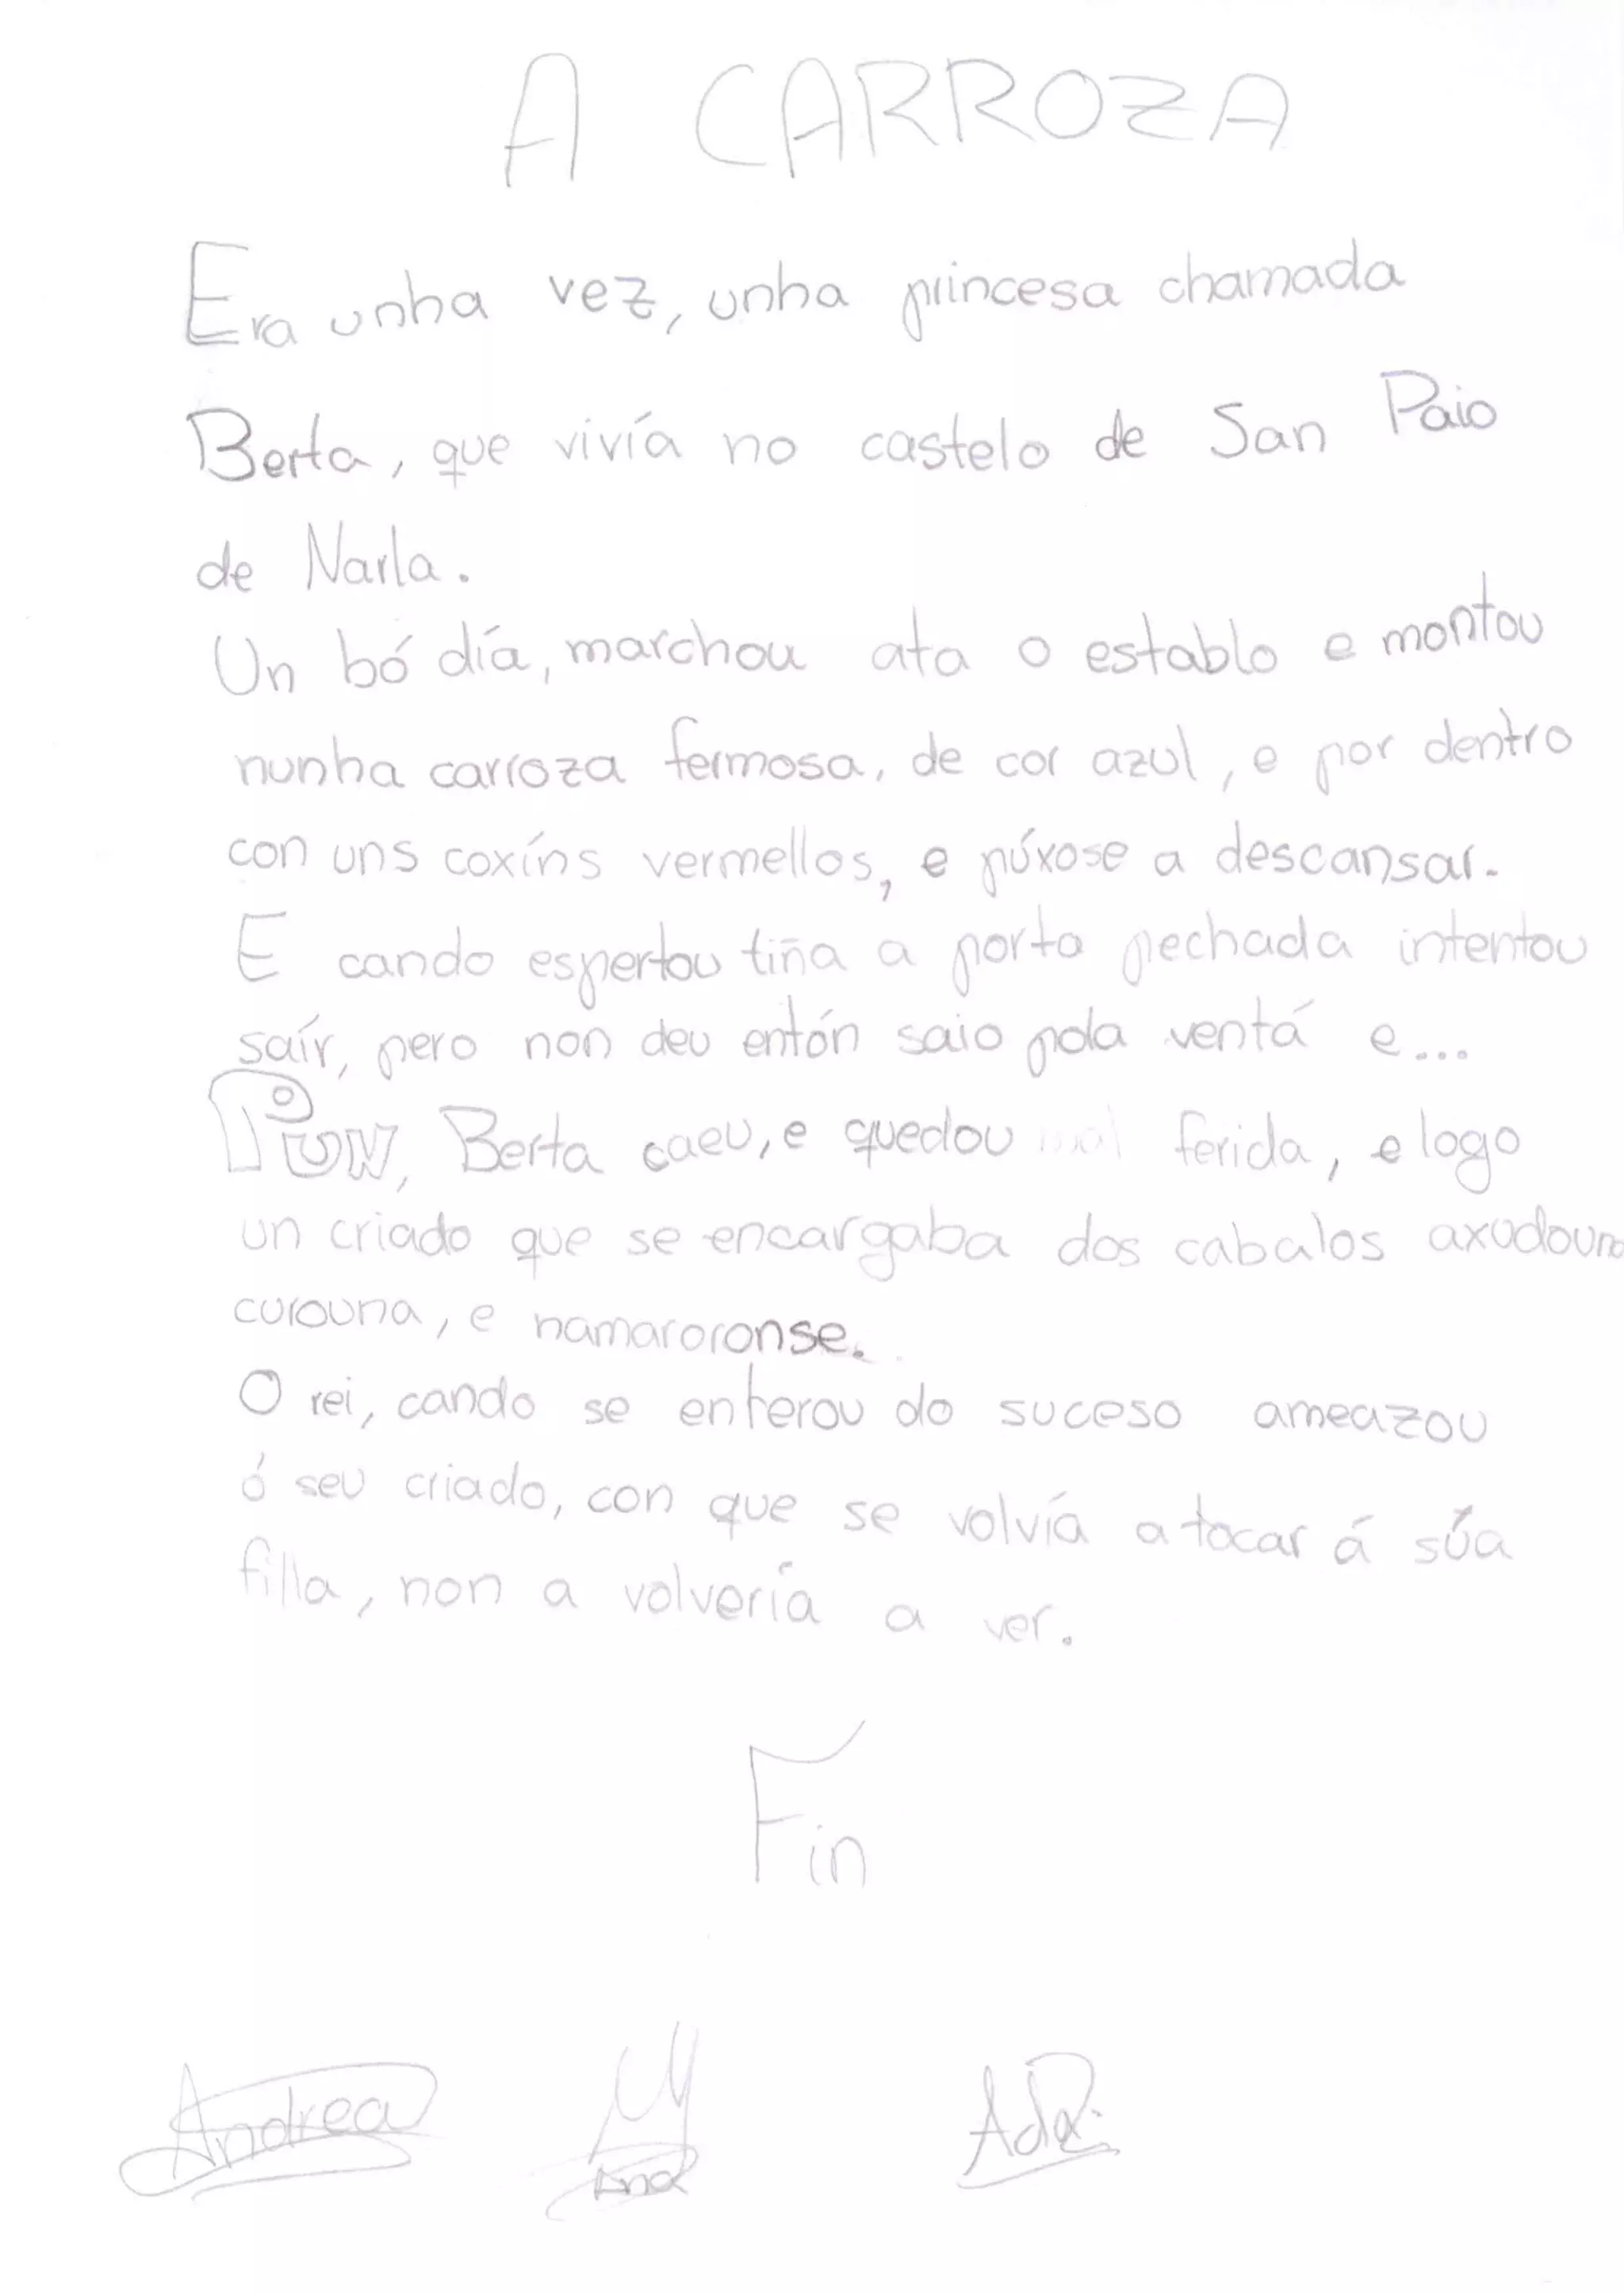 A CARROZA
Era unha vez, unha princesa chamada
Berta, que vivía no castelo de San Paio
de Narla.
Un bó día, marchou ata o establo e montou
nunha carroza fermosa, de cor azul, e por dentro
con uns coxíns vermellos, e púxose a descansar.
E cando espertou tiña a porta pechada intentou
saír, pero non deu entón saio pola ventá e...
PiUW, Berta caeu, e quedou mal ferida, e logo
un criado que se encargaba dos cabalos axudouna
curouna, e namaroronse.
O rei, cando se enterou do suceso ameazou
ó seu criado, con que se volvía a tocar á súa
filla, non a volvería a ver.
Fin
Andrea Ada
Ana